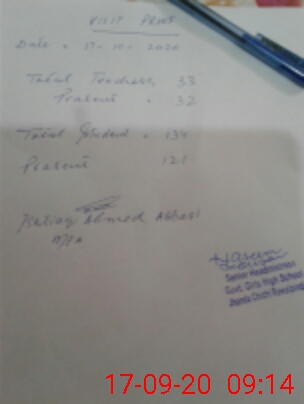 VISIT PROOF
Date = 17-10-2020
Total Teachers, 33
Present = 32
Total Student = 134
Present 121
Ahmed Abbasi
Senior Headmistress
Govt. Girls High School
17-09-20 09:14